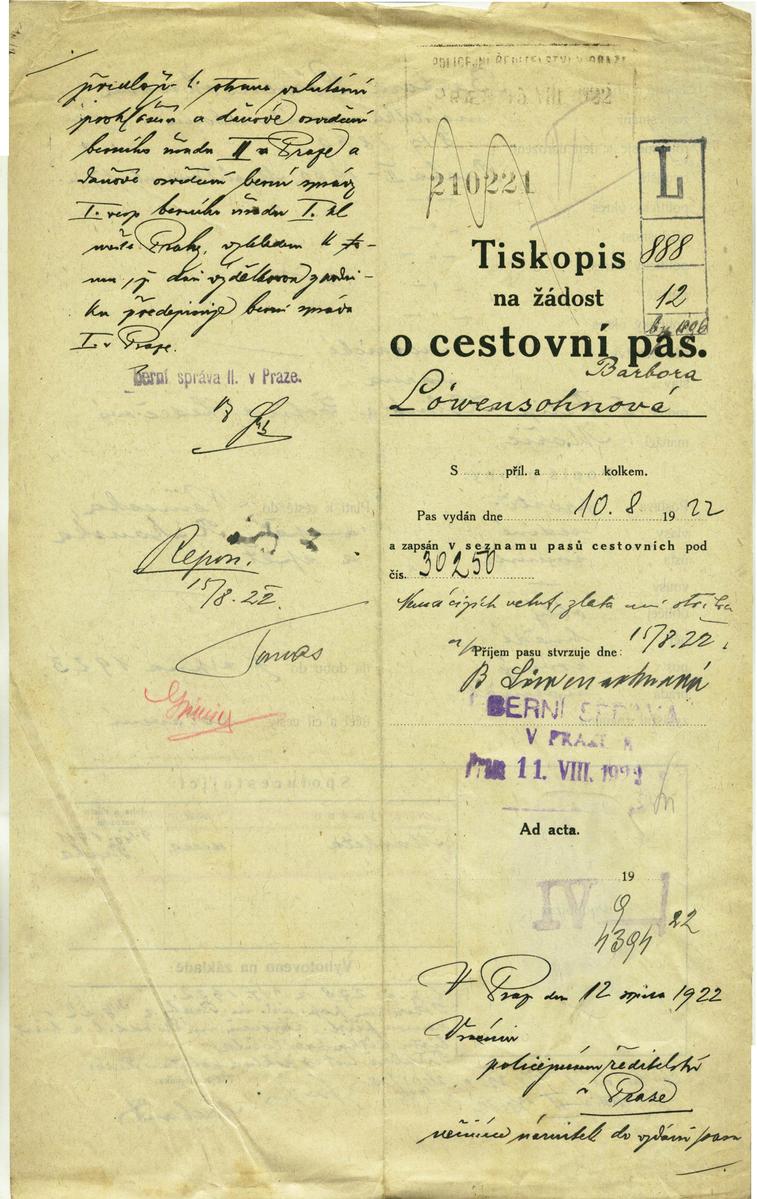 předlož. t. strana valutární
prohlášení a daňové osvědčení
berního úřadu II v Praze a
daňové osvědčení berní správy
I. resp berního úřadu I. hl
města Prahy, vzhledem k to-
mu, že daň výdělkovou
předepisuje berní správa
I. v Praze.
Berní správa II. v Praze.
Repon.
15/8.22.
Tomas
POLICEJNÍ ŘEDITELSTVÍ V PRAZE
210221
L
888
12
Tiskopis
na žádost
o cestovní pas.
Barbora
Löwensohnová
S ........ příl. a ........ kolkem.
Pas vydán dne 10. 8. 1922
a zapsán v seznamu pasů cestovních pod
čís. 30250
15/8.22
Příjem pasu stvrzuje dne:
B Löwensohnová
BERNÍ SPRÁVA
V PRAZE
11. VIII. 1922
Ad acta.
19
IV
9
4394 22
V Praze dne 12 srpna 1922
Vráceno
policejnímu ředitelství
v Praze
do vydání pasu